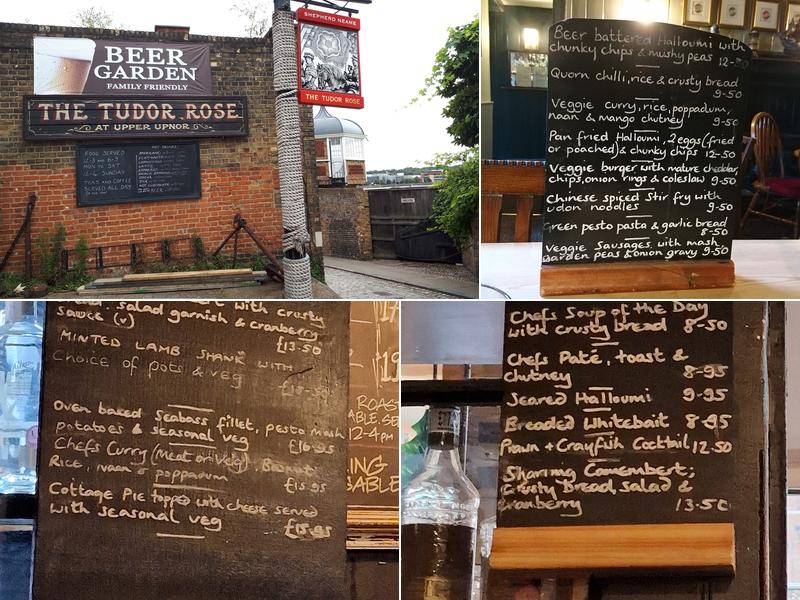 BEER
GARDEN
FAMILY FRIENDLY
THE TUDOR ROSE
AT UPPER UPNOR
FOOD SERVED
MON TO SAT
12-4 SUNDAY
TEAS AND COFFEE
SERVED ALL DAY
SHEPHERD NEAME
THE TUDOR ROSE
Beer battered Halloumi with
chunky chips & mushy peas 12-50
Quorn chilli, rice & crusty bread
9-50
Veggie curry, rice, poppadum,
naan & mango chutney 9-50
Pan fried Halloumi, 2 eggs (fried
or poached) & chunky chips 12-50
Veggie burger with mature cheddar,
chips, onion rings & coleslaw 9-50
Chinese spiced Stir fry with
udon noodles 9-50
Green pesto pasta & garlic bread
8-50
Veggie Sausages, with mash,
garden peas & onion gravy 9-50
with crusty
salad garnish & cranberry
sauce (v) £13.50
MINTED LAMB SHANK WITH
Choice of pots & veg
Oven baked Seabass fillet, pesto mash
potatoes & seasonal veg £16.95
Chefs Curry (Meat or Veg), Basmati
Rice, naan & poppadum £15.95
Cottage Pie topped with cheese served
with seasonal veg £15.95
ROAST
12-4PM
Chefs Soup of the Day
with crusty bread 8-50
Chefs Paté, toast &
chutney 8-95
Seared Halloumi 9-95
Breaded Whitebait 8-95
Prawn + Crayfish Cocktail 12.50
Sharing Camembert;
Crusty Bread, salad &
cranberry 13-50